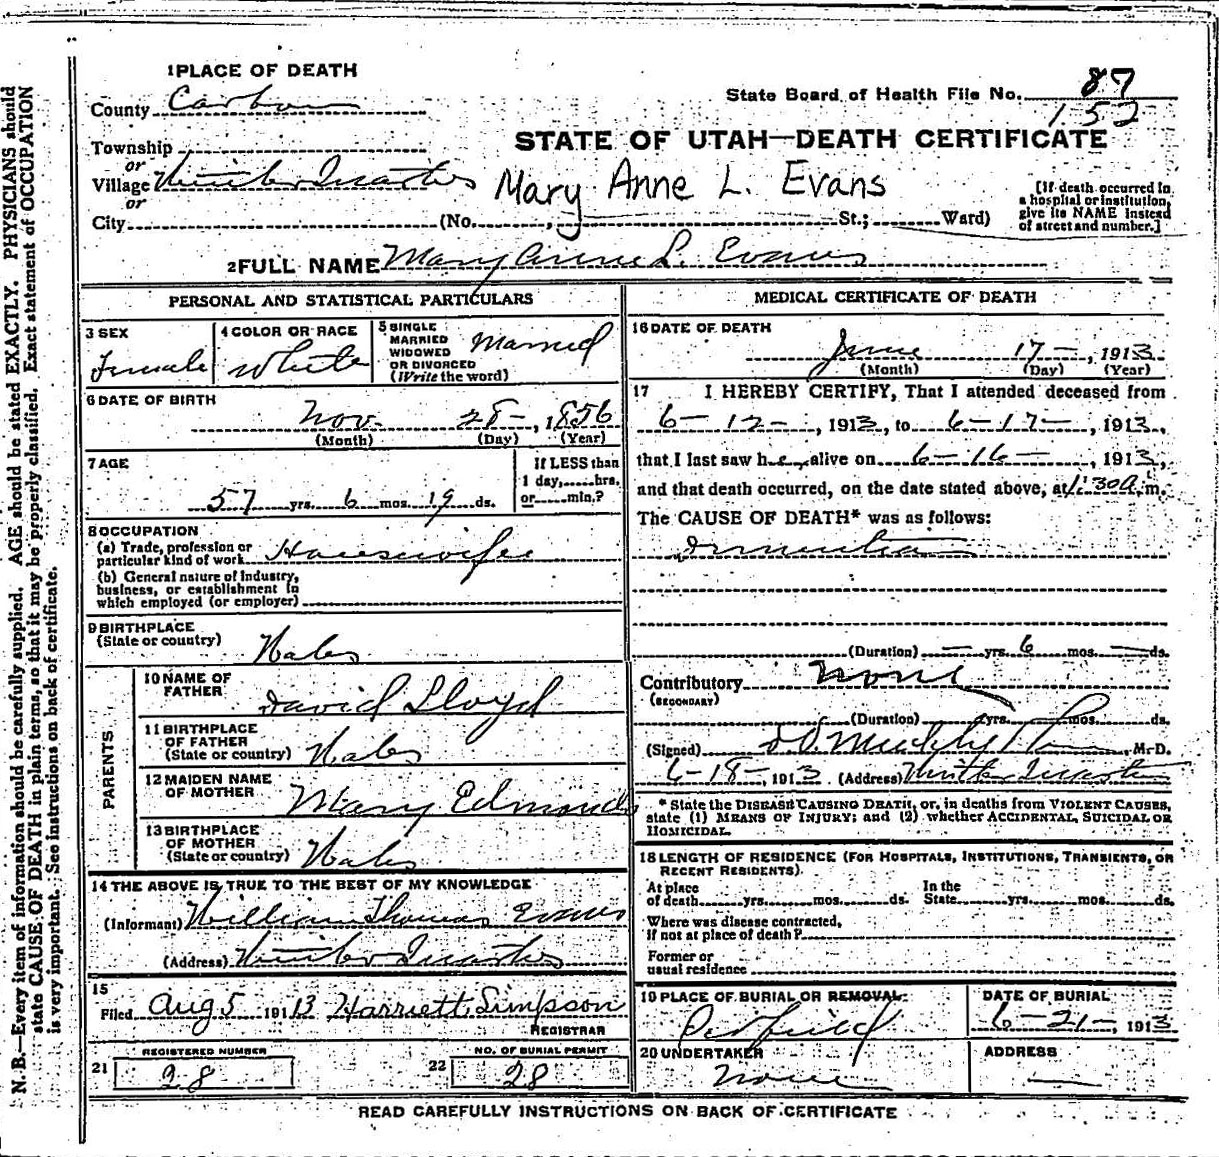 1 PLACE OF DEATH
County Carbon
State Board of Health File No. 87
152
Township
or
Village Winter Quarters
or
City
STATE OF UTAH—DEATH CERTIFICATE
Mary Anne L. Evans
(No. , St.; Ward)
[If death occurred in
a hospital or institution,
give its NAME instead
of street and number.]
2 FULL NAME Mary Anne L. Evans
PERSONAL AND STATISTICAL PARTICULARS
3 SEX
Female
4 COLOR OR RACE
White
5 SINGLE
MARRIED
WIDOWED
OR DIVORCED
(Write the word)
Married
6 DATE OF BIRTH
Nov. 28 , 1856
(Month) (Day) (Year)
7 AGE
57 yrs. 6 mos. 19 ds.
If LESS than
1 day,......hrs.
or......min.?
8 OCCUPATION
(a) Trade, profession or
particular kind of work Housewife
(b) General nature of industry,
business, or establishment in
which employed (or employer)
9 BIRTHPLACE
(State or country) Wales
PARENTS
10 NAME OF
FATHER David Lloyd
11 BIRTHPLACE
OF FATHER
(State or country) Wales
12 MAIDEN NAME
OF MOTHER Mary Edmonds
13 BIRTHPLACE
OF MOTHER
(State or country) Wales
14 THE ABOVE IS TRUE TO THE BEST OF MY KNOWLEDGE
(Informant) William Thomas Evans
(Address) Winter Quarters
15
Filed Aug 5 1913 Harriett Simpson
REGISTRAR
REGISTERED NUMBER
21 28
NO. OF BURIAL PERMIT
22 28
MEDICAL CERTIFICATE OF DEATH
16 DATE OF DEATH
June 17 , 1913
(Month) (Day) (Year)
17 I HEREBY CERTIFY, That I attended deceased from
6-12- , 1913, to 6-17- , 1913,
that I last saw her alive on 6-16- , 1913,
and that death occurred, on the date stated above, at 1:30 a.m.
The CAUSE OF DEATH* was as follows:
(Duration) — yrs. 6 mos. — ds.
Contributory None
(SECONDARY)
(Duration) yrs. mos. ds.
(Signed) M.D.
6-18- , 1913 (Address) Winter Quarters
* State the DISEASE CAUSING DEATH, or, in deaths from VIOLENT CAUSES,
state (1) MEANS OF INJURY; and (2) whether ACCIDENTAL, SUICIDAL OR
HOMICIDAL.
18 LENGTH OF RESIDENCE (FOR HOSPITALS, INSTITUTIONS, TRANSIENTS, OR
RECENT RESIDENTS).
At place In the
of death......yrs......mos......ds. State......yrs......mos......ds.
Where was disease contracted,
if not at place of death?
Former or
usual residence
19 PLACE OF BURIAL OR REMOVAL
DATE OF BURIAL
6-21- , 1913
20 UNDERTAKER
None
ADDRESS
—
READ CAREFULLY INSTRUCTIONS ON BACK OF CERTIFICATE
N. B.—Every item of information should be carefully supplied. AGE should be stated EXACTLY. PHYSICIANS should
state CAUSE OF DEATH in plain terms, so that it may be properly classified. Exact statement of OCCUPATION
is very important. See instructions on back of certificate.